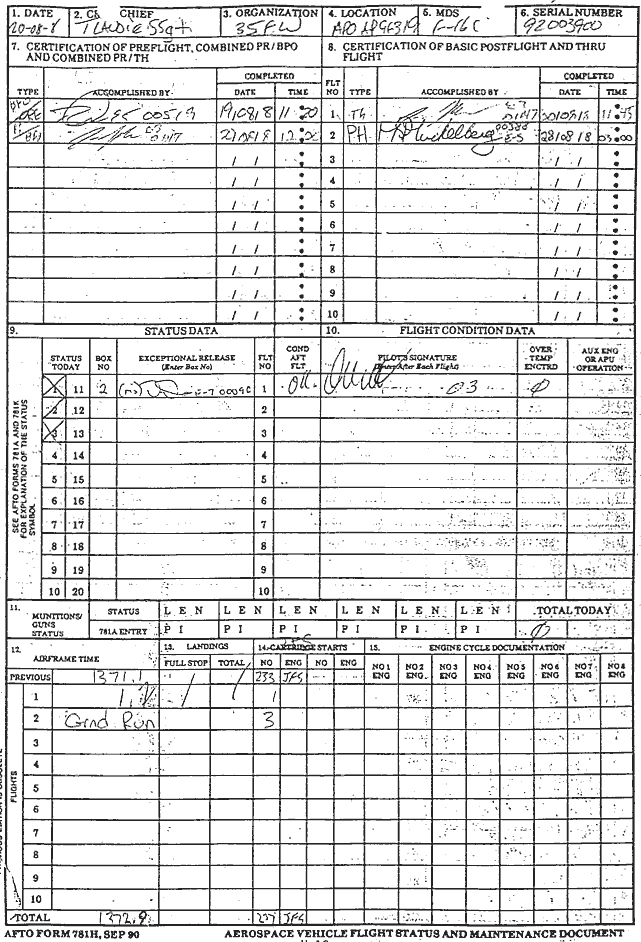 1. DATE 2. CR CHIEF 3. ORGANIZATION 4. LOCATION 5. MDS 6. SERIAL NUMBER
20-08-8 SSgt 35FW APO AP96319 F-16C 92003900
7. CERTIFICATION OF PREFLIGHT, COMBINED PR/BPO AND COMBINED PR/TH
8. CERTIFICATION OF BASIC POSTFLIGHT AND THRU FLIGHT
TYPE ACCOMPLISHED BY COMPLETED DATE TIME
FLT NO TYPE ACCOMPLISHED BY COMPLETED DATE TIME
00519 19/08/8 11:20
1 Th E-7 11:45
2 PH E-5 28/08/8 03:00
3
4
5
6
7
8
9
10
9. STATUS DATA 10. FLIGHT CONDITION DATA
STATUS TODAY BOX NO EXCEPTIONAL RELEASE (Enter Box No) FLT NO COND AFT FLT PILOT'S SIGNATURE (Enter After Each Flight) OVER TEMP ENCTRD AUX ENG OR APU OPERATION
1 11 2 E-7 1 OK 03 0
2 12 2
3 13 3
4 14 4
5 15 5
6 16 6
7 17 7
8 18 8
9 19 9
10 20 10
SEE AFTO FORMS 781A AND 781K FOR EXPLANATION OF THE STATUS SYMBOL
11. MUNITIONS/ GUNS STATUS STATUS L E N L E N L E N L E N L E N L E N TOTAL TODAY
781A ENTRY P I P I P I P I P I P I 0
12. AIRFRAME TIME 13. LANDINGS 14. CARTRIDGE STARTS 15. ENGINE CYCLE DOCUMENTATION
JFS
FULL STOP TOTAL NO ENG NO ENG NO 1 ENG NO 2 ENG NO 3 ENG NO 4 ENG NO 5 ENG NO 6 ENG NO 7 ENG NO 8 ENG
PREVIOUS 1371.1 233 JFS
1 1 / 1 1
2 Grnd Run 3
3
4
5
6
7
8
9
10
FLIGHTS
TOTAL 1372.9 237 JFS
AFTO FORM 781H, SEP 90 AEROSPACE VEHICLE FLIGHT STATUS AND MAINTENANCE DOCUMENT